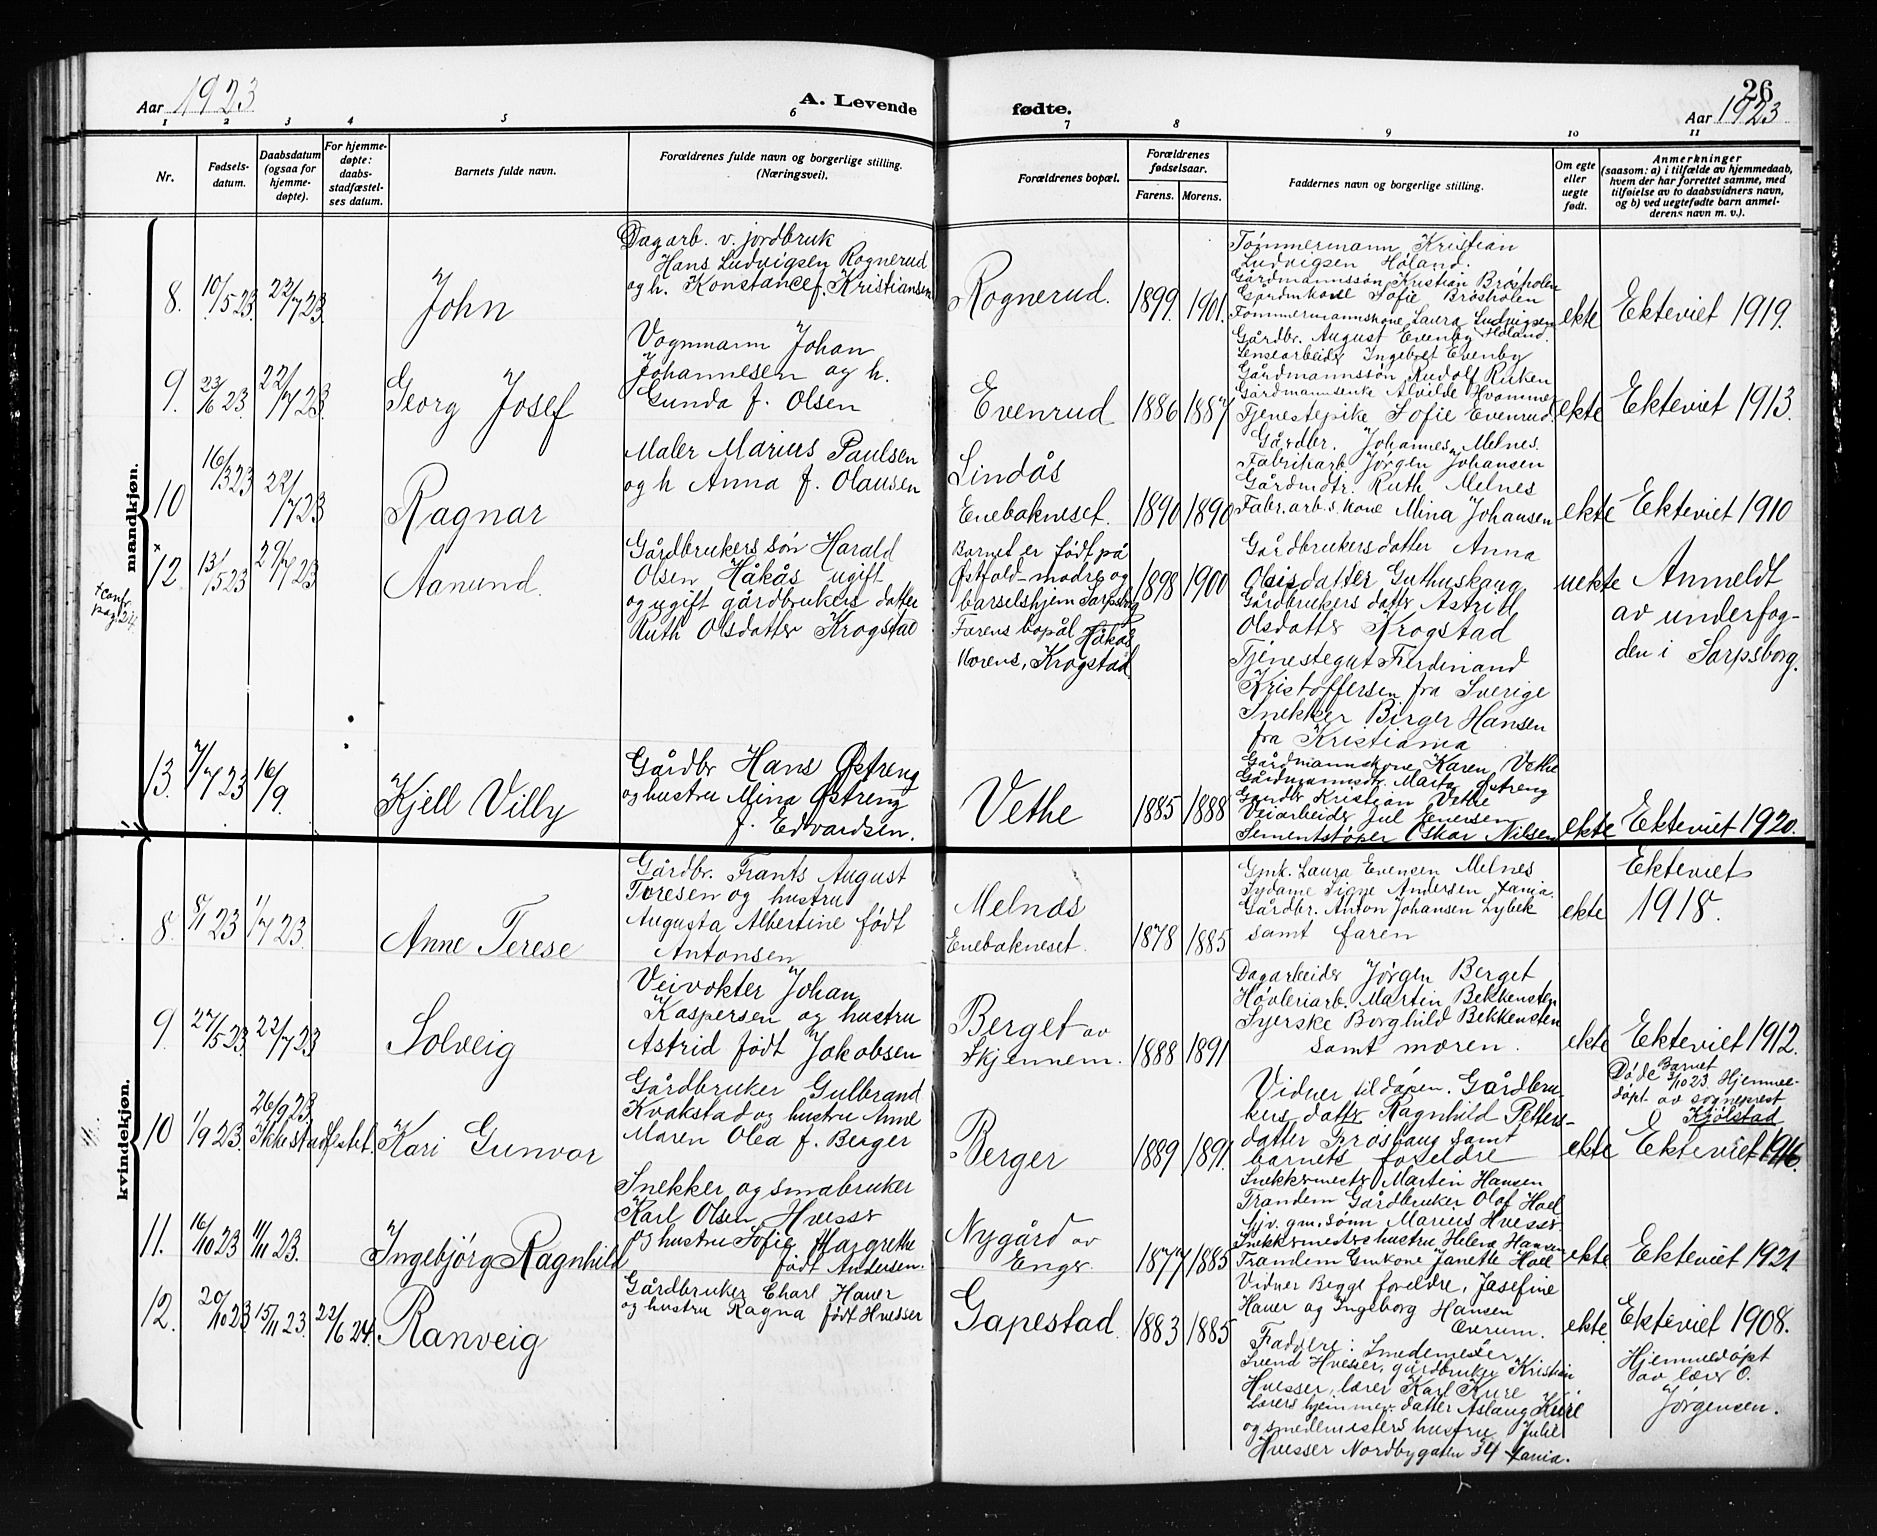 Aar 1923
A. Levende
fødte.
26
Aar 1923
1 2 3 4 5 6 7 8 9 10 11
Nr.
Fødsels-
datum.
Daabsdatum
(ogsaa for
hjemme-
døpte).
For hjemme-
døpte:
daabs-
stadfæstel-
ses datum.
Barnets fulde navn.
Forældrenes fulde navn og borgerlige stilling.
(Næringsvei).
Forældrenes bopæl.
Forældrenes
fødselsaar.
Farens. Morens.
Faddernes navn og borgerlige stilling.
Om egte
eller
uegte
født.
Anmerkninger
(saasom: a) i tilfælde av hjemmedaab,
hvem der har forrettet samme, med
tilføielse av to daabsvidners navn,
og b) ved uegtefødte barn anmel-
derens navn m. v.).
mandkjøn.
8.
10/5 23.
22/7 23.
John
Dagarb. v. jordbruk
Hans Ludvigsen Rognerud
og h. Konstance f. Kristiansen
Rognerud.
1899.
1901.
Tømmermann Kristian
Ludvigsen Høland.
Gårdmannssøn Kristian Brøsholen
Gårdmkone Sofie Brøsholen
Tømmermannskone Laura Ludvigsen
Høland.
ekte
Ekteviet 1919.
9.
23/6 23.
22/7 23
Georg Josef
Vognmann Johan
Johannesen og h.
Gunda f. Olsen
Evenrud
1886
1887
Gårdbr. August Evenby
Lensearbeider Ingebret Evenby
Gårdmannssøn Rudolf Rirken
Gårdmannsenke Alvilde Hvammer
Tjenestepike Sofie Evenrud.
ekte
Ekteviet 1913.
10
16/3 23
22/7 23
Ragnar
Maler Marius Paulsen
og h Anna f. Olausen
Lindås
Enebakneset.
1890
1890
Gårdbr. Johannes Melnes.
Fabrikarb Jørgen Johansen
Gårdmdtr. Ruth Melnes
Fabr.arb.s kone Mina Johansen
ekte
Ekteviet 1910
x
12
x conf.
pag. 24.
13/5 23
29/7 23
Aamund.
Gårdbrukers søn Harald
Olsen Håkås ugift
og ugift gårdbrukers datter
Ruth Olsdatter Krogstad
Barnet er født på
Østfold mødre og
barselshjem Sarpsborg
Farens bopål Håkås
Morens, Krogstad
1898
1900
Gårdbrukersdatter Anna
Olsisdatter Guthuskaug
Gårdbrukers datter Astrid
Olsdatter Krogstad
Tjenestegut Ferdinand
Kristoffersen fra Sverige
Snekker Birger Hansen
fra Kristiania
uekte
Anmeldt
av underfog-
den i Sarpsborg.
13.
7/7 23
16/9.
Kjell Villy
Gårdbr Hans Østreng
og hustru Mina Østreng
f. Edvardsen.
Vethe
1885
1888
Gårdmannskone Karen Vethe
Gårdmannsdt. Marta Østreng
Gaardbr Kristian Vethe
Veiarbeider Jul Enersen
Sementstøper Oskar Nilsen
ekte
Ekteviet 1920.
kvindekjøn.
8.
8/1 23
1/7 23
Anne Terese
Gårdbr. Frants August
Toresen og hustru
Augusta Albertine født
Antonsen
Melnäs
Enebakneset.
1878
1885
Gmk. Laura Evensen Melnes
Sydame Signe Andersen Xania.
Gårdbr. Anton Johansen Lybek
samt faren
ekte
Ekteviet
1918.
9.
27/5 23.
22/7 23
Solveig
Veivokter Johan
Kaspersen og hustru
Astrid født Jakobsen
Berget av
Skjennem.
1888
1891
Dagarbeider Jørgen Berget
Høvleriarb. Martin Bekkensten
Syerske Borghild Bekkensten
samt moren.
ekte
Ekteviet 1912.
10
1/9 23.
26/9 23.
Ikke stadfestet.
Kari Gunvor
Gårdbruker Gulbrand
Kvakstad og hustru Anne
Maren Olea f. Berger
Berger
1889
1891.
Vidner til dåpen. Gårdbru-
kers datter Ragnhild Peters-
datter Frøshaug samt
barnets foreldre
ekte
Døde Barnet
3/10 23. Hjemme-
døpt av sogneprest
Kjølstad
Ekteviet 1916.
11.
16/10 23
11/11 23.
Ingebjörg Ragnhild
Snekker og småbruker
Karl Olsen Huesser
og hustru Sofie Margrethe
født Andersen.
Nygård av
Enger
1877
1885
Snekkermester Martin Hansen
Trandem Gårdbruker Olaf Hoel
Sjv. gm. sønn Marius Huesser
Snekkermesters hustru Helene Hansen
Trandem Gmkone Janette Hoel
ekte
Ekteviet 1921
12.
20/10 23
15/11 23.
22/6 24.
Ranveig
Gårdbruker Charl Hauer
og hustru Ragna født Huesser
Gapestad.
1883
1885
Vidner Begge foreldre, Josefine
Hauer og Ingeborg Hansen
Ekerum.
Faddere: Smedemester
Svend Huesser, gårdbruker Kristian
Huesser, lærer Karl Kure
Lærers hjemmev. datter Aslaug Kure
og smedemesters hustru Julie
Huesser Nordbygaten 34 Xania.
ekte.
Ekteviet 1908.
Hjemmedöpt
av lærer O.
Jørgensen.